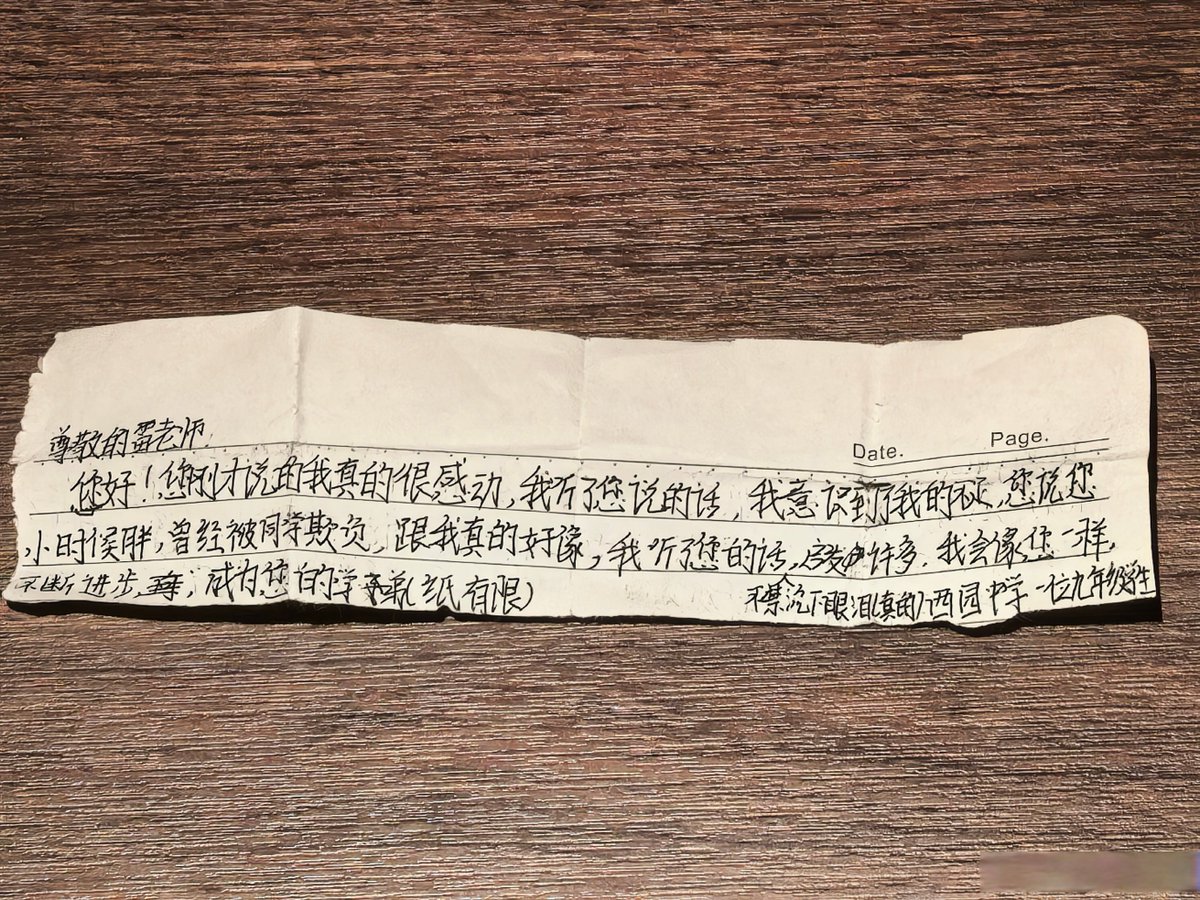 尊敬的雷老师:
Date. Page.
您好!您刚才说的我真的很感动,我听了您说的话,我意识到了我的不足,您说您
小时侯胖,曾经被同学欺负,跟我真的好像,我听了您的话,许多.我会像您一样,
不断进步,成为您的学(纸有限)
不禁流下眼泪(真的)西园中学一位九年级学生